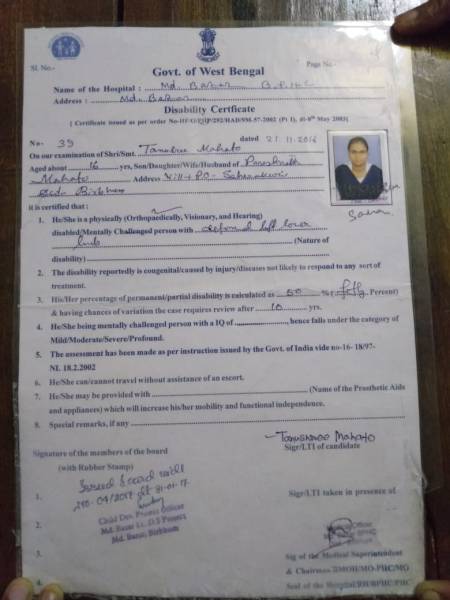 Sl. No.- Page No.
Govt. of West Bengal
Name of the Hospital : Md. Bazar B.P.H.C
Address : Md. Bazar
Disability Certficate
[ Certificate issued as per order No-HF/O/PHP/292/HAD/9M.57-2002 (Pt I), dt-8th May 2003]
No- 39 dated 21.11.2016
On our examination of Shri/Smt. Tanushree Mahato
Aged about 16 yrs, Son/Daughter/Wife/Husband of
Mahato Address Vill + P.O-
Birbhum
it is certified that :
1. He/She is a physically (Orthopaedically, Visionary, and Hearing)
disabled/Mentally Challenged person with deformed left lower
limb (Nature of
disability)
2. The disability reportedly is congenital/caused by injury/diseases not likely to respond to any sort of
treatment.
3. His/Her percentage of permanent/partial disability is calculated as 50 % ( fifty Percent)
& having chances of variation the case requires review after 10 yrs.
4. He/She being mentally challenged person with a IQ of , hence falls under the category of
Mild/Moderate/Severe/Profound.
5. The assessment has been made as per instruction issued by the Govt. of India vide no-16- 18/97-
NI. 18.2.2002
6. He/She can/cannot travel without assistance of an escort.
7. He/She may be provided with (Name of the Prosthetic Aids
and appliances) which will increase his/her mobility and functional independence.
8. Special remarks, if any
Tanushree Mahato
Signature of the members of the board Sigr/LTI of candidate
(with Rubber Stamp)
1. Issued board with
04/2017 dt 31-01-17 Sigr/LTI taken in presence of
2. Child Dev. Project Officer
Md. Bazar I.C.D.S Project
Md. Bazar, Birbhum
3. Officer
BPHC
Sig of the Medical Superintendent
& Chairman DMOH/MO-PHC/MO
4. Seal of the Hospital/RH/BPHC/PHC